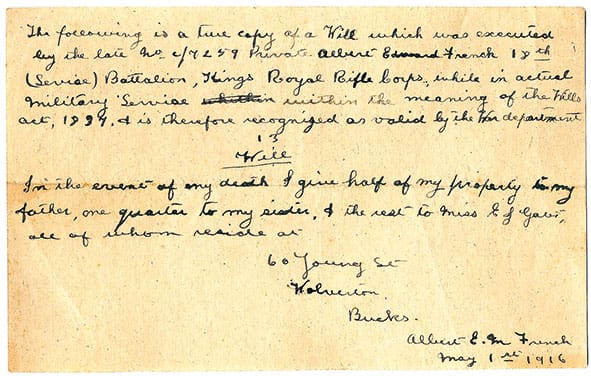 The following is a true copy of a Will which was executed
by the late No. C/7259 Private Albert Edward French 18th
(Service) Battalion, Kings Royal Rifle Corps, while in actual
Military Service within the meaning of the Wills
Act, & is therefore recognized as valid by the War department
13
Will
In the event of my death I give half of my property to my
father, one quarter to my sister, & the rest to Miss E
all of whom reside at
60 Young St
Wolverton.
Bucks.
Albert E. French
May 1st 1916